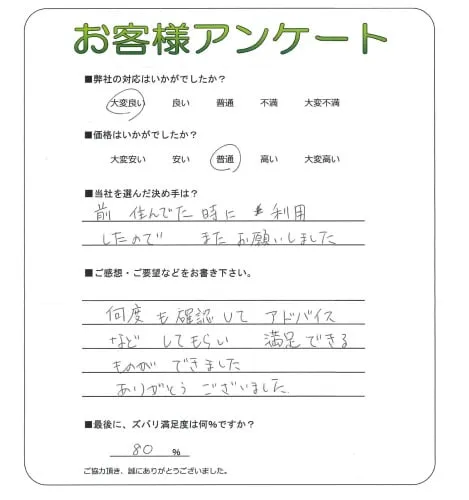 お客様アンケート
■弊社の対応はいかがでしたか？
大変良い 良い 普通 不満 大変不満
■価格はいかがでしたか？
大変安い 安い 普通 高い 大変高い
■当社を選んだ決め手は？
前 住んでた 時に 利用
したので また お願いしました
■ご感想・ご要望などをお書き下さい。
何度も確認して アドバイス
など してもらい 満足できる
ものが できました
ありがとう ございました
■最後に、ズバリ満足度は何％ですか？
80 %
ご協力頂き、誠にありがとうございました。